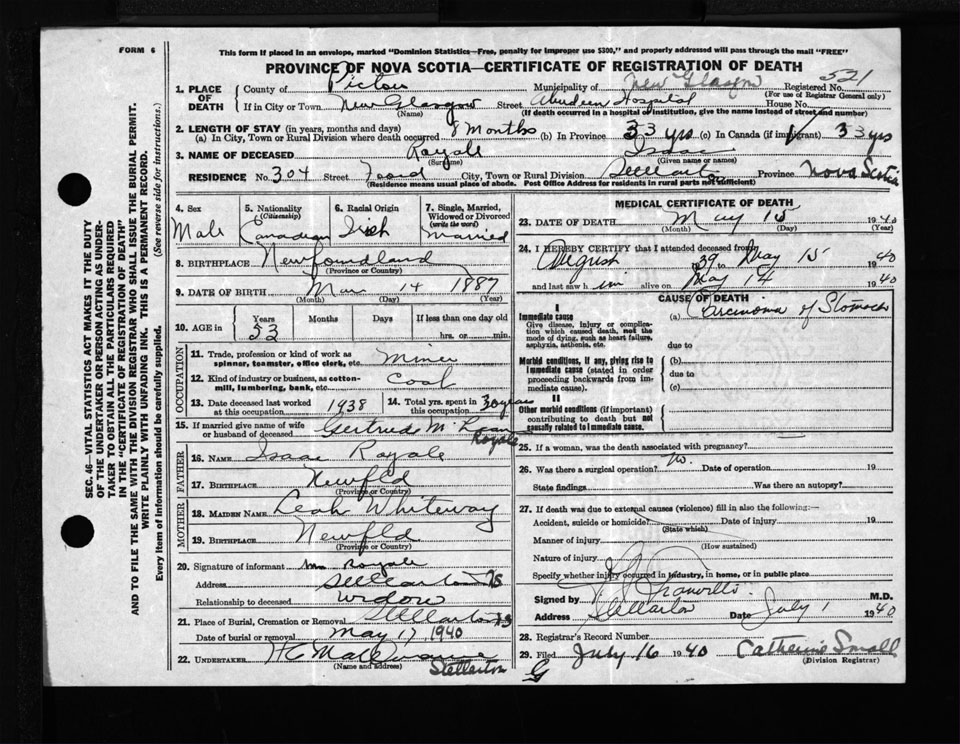 FORM 6
This form if placed in an envelope, marked "Dominion Statistics—Free, penalty for improper use $300," and properly addressed will pass through the mail "FREE"
PROVINCE OF NOVA SCOTIA—CERTIFICATE OF REGISTRATION OF DEATH
521
1. PLACE OF DEATH County of Pictou Municipality of New Glasgow Registered No.
(For use of Registrar General only)
If in City or Town New Glasgow Street Aberdeen Hospital House No.
(Name) (If death occurred in a hospital or institution, give the name instead of street and number)
2. LENGTH OF STAY (in years, months and days)
(a) In City, Town or Rural Division where death occurred 8 Months (b) In Province 33 yrs (c) In Canada (if immigrant) 33 yrs
3. NAME OF DECEASED Royale Isaac
(Surname) (Given name or names)
RESIDENCE No. 304 Street Foord City, Town or Rural Division Stellarton Province Nova Scotia
(Residence means usual place of abode. Post Office Address for residents in rural parts not sufficient)
4. Sex Male
5. Nationality (Citizenship) Canadian
6. Racial Origin Irish
7. Single, Married, Widowed or Divorced (write the word) Married
8. BIRTHPLACE Newfoundland
(Province or Country)
9. DATE OF BIRTH Mar 14 1887
(Month) (Day) (Year)
10. AGE in Years 53 Months Days If less than one day old
hrs. or min.
OCCUPATION
11. Trade, profession or kind of work as spinner, teamster, office clerk, etc. Miner
12. Kind of industry or business, as cotton-mill, lumbering, bank, etc. Coal
13. Date deceased last worked at this occupation 1938
14. Total yrs. spent in this occupation 30 years
15. If married give name of wife or husband of deceased Gertrude Royale
FATHER
16. NAME Isaac Royale
17. BIRTHPLACE Newfld
(Province or Country)
MOTHER
18. MAIDEN NAME Leah Whiteway
19. BIRTHPLACE Newfld
(Province or Country)
20. Signature of informant Mrs Royale
Address Stellarton NS
Relationship to deceased widow
21. Place of Burial, Cremation or Removal Stellarton NS
Date of burial or removal May 17 1940
22. UNDERTAKER
(Name and address) Stellarton
MEDICAL CERTIFICATE OF DEATH
23. DATE OF DEATH May 15 1940
(Month) (Day) (Year)
24. I HEREBY CERTIFY that I attended deceased from
August 39 May 15 1940
and last saw him alive on May 14 1940
CAUSE OF DEATH
I
Immediate cause
Give disease, injury or complication which caused death, not the mode of dying, such as heart failure, asphyxia, asthenia, etc.
(a) Carcinoma of Stomach
due to
Morbid conditions, if any, giving rise to immediate cause (stated in order proceeding backwards from immediate cause).
(b)
due to
(c)
II
Other morbid conditions (if important) contributing to death but not causally related to immediate cause.
25. If a woman, was the death associated with pregnancy?
26. Was there a surgical operation? No. Date of operation 19
State findings Was there an autopsy?
27. If death was due to external causes (violence) fill in also the following:—
Accident, suicide or homicide? Date of injury 19
(State which)
Manner of injury
(How sustained)
Nature of injury
Specify whether injury occurred in industry, in home, or in public place
Signed by M.D.
Address Stellarton Date July 1 1940
28. Registrar's Record Number
29. Filed July 16 1940 Catherine Small
(Division Registrar)
G
SEC. 46—VITAL STATISTICS ACT MAKES IT THE DUTY
OF THE UNDERTAKER OR PERSON ACTING AS UNDER-
TAKER TO OBTAIN ALL THE PARTICULARS REQUIRED
IN THE "CERTIFICATE OF REGISTRATION OF DEATH"
AND TO FILE THE SAME WITH THE DIVISION REGISTRAR WHO SHALL ISSUE THE BURIAL PERMIT.
WRITE PLAINLY WITH UNFADING INK. THIS IS A PERMANENT RECORD.
Every item of information should be carefully supplied. (See reverse side for instructions.)